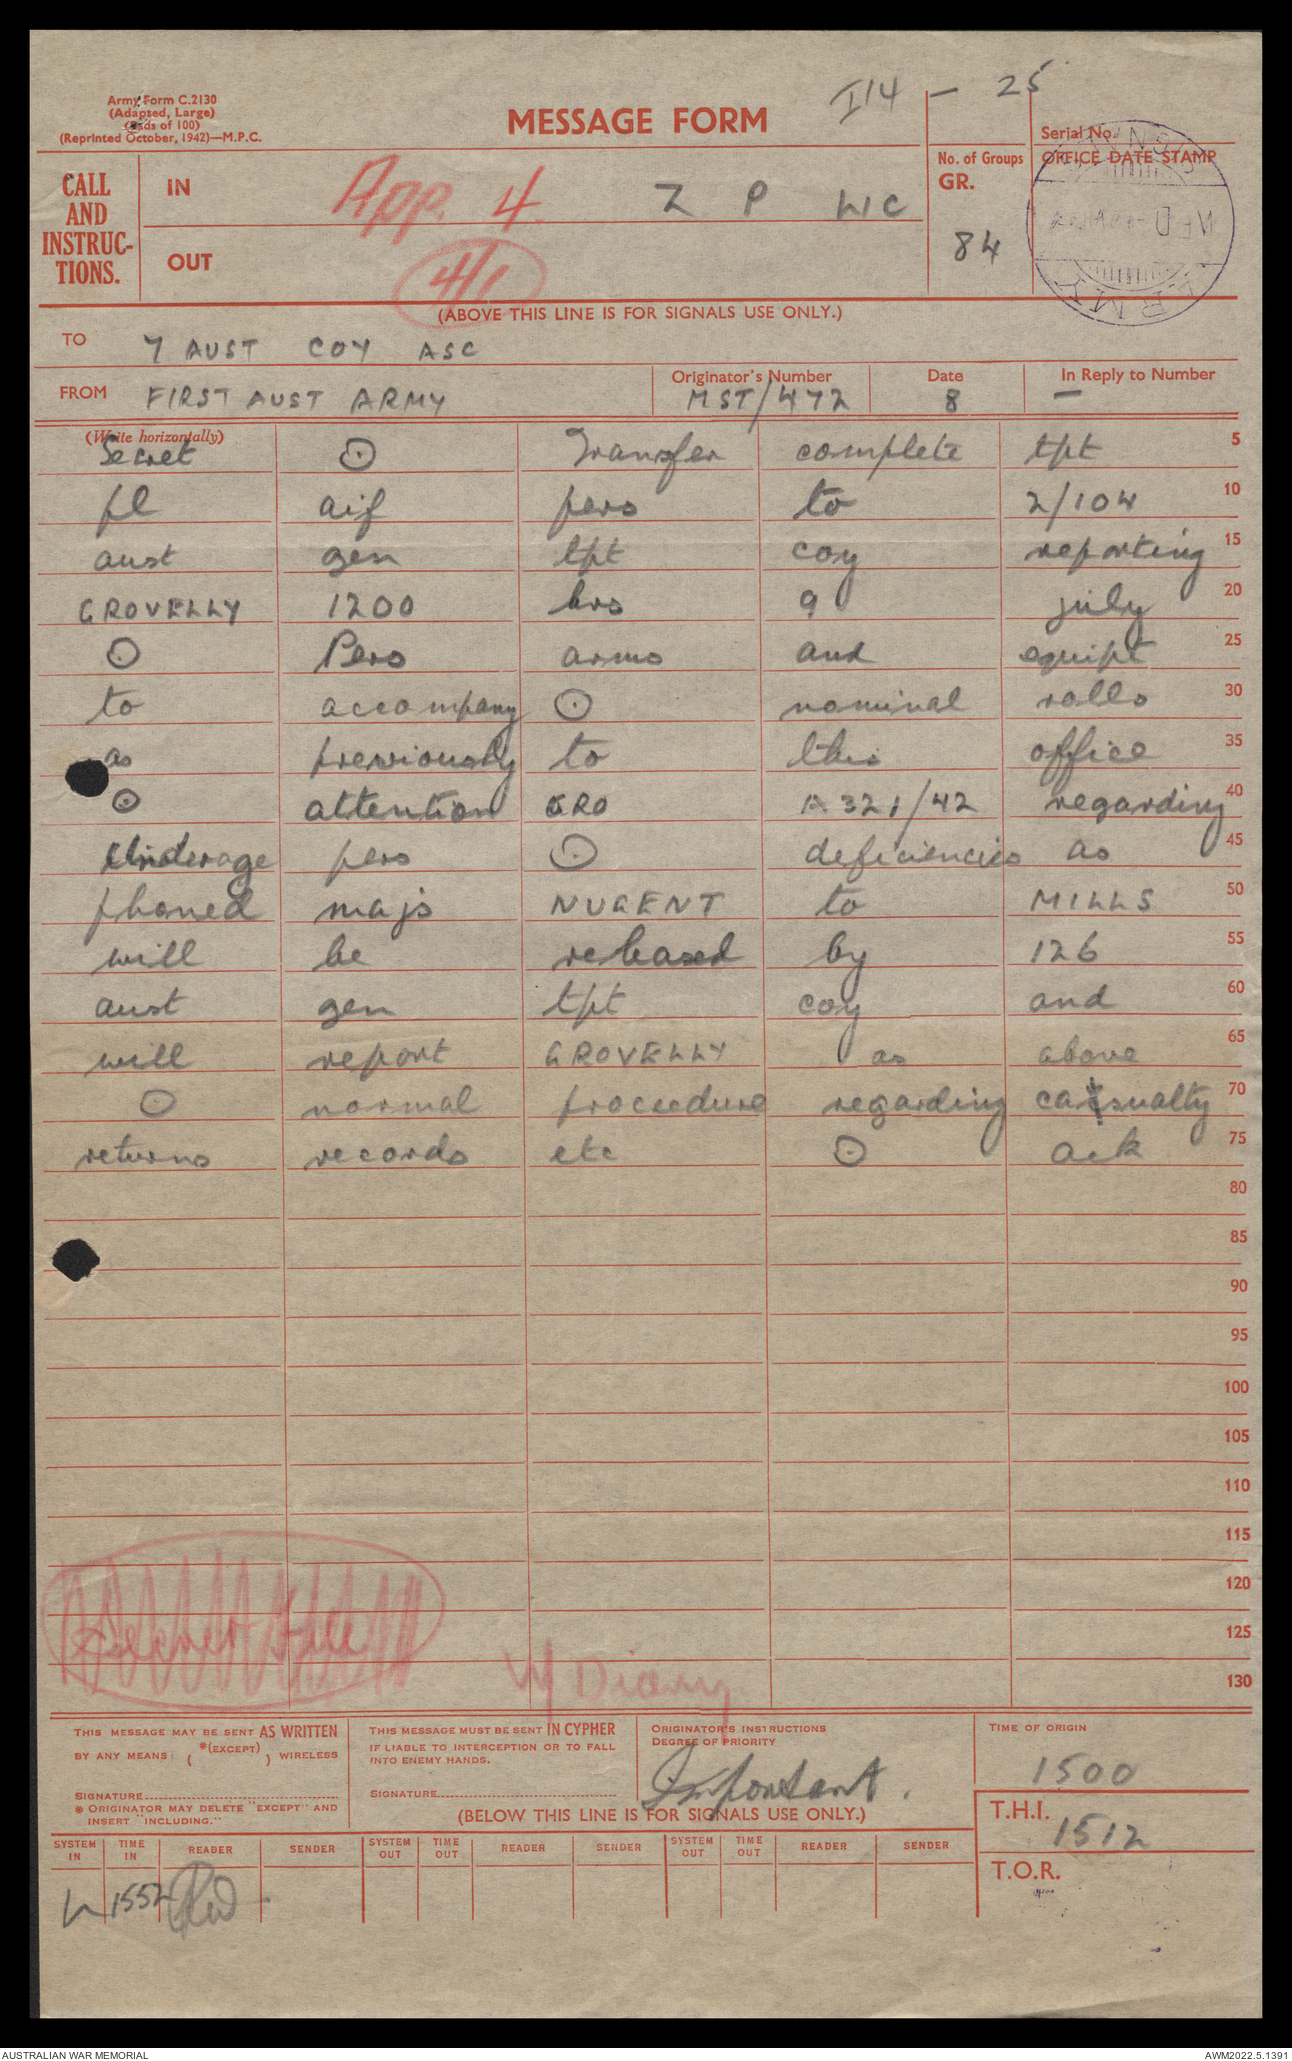 Army Form C.2130
(Adapted, Large)
(Pads of 100)
(Reprinted October, 1942)—M.P.C.
MESSAGE FORM
I14 - 25
Serial No.
CALL AND INSTRUC-TIONS.
IN
App. 4.
Z P WC
No. of Groups
GR.
84
OFFICE DATE STAMP
SIGNALS
WED
ARMY
OUT
4/1
(ABOVE THIS LINE IS FOR SIGNALS USE ONLY.)
TO 7 AUST COY ASC
FROM FIRST AUST ARMY
Originator's Number MST/472
Date 8
In Reply to Number —
(Write horizontally)
Secret ⊙ Transfer complete tpt 5
pl aif pers to 2/104 10
aust gen tpt coy reporting 15
GROVELLY 1200 hrs 9 july 20
⊙ Pers arms and equipt 25
to accompany ⊙ nominal rolls 30
as previously to this office 35
⊙ attention GRO A321/42 regarding 40
underage pers ⊙ deficiencies as 45
phoned majs NUGENT to MILLS 50
will be released by 126 55
aust gen tpt coy and 60
will report GROVELLY as above 65
⊙ normal procedure regarding casualty 70
returns records etc ⊙ ack 75
80
85
90
95
100
105
110
115
120
Secret File 125
W Diary 130
THIS MESSAGE MAY BE SENT AS WRITTEN
BY ANY MEANS (*(EXCEPT)) WIRELESS
SIGNATURE
* ORIGINATOR MAY DELETE "EXCEPT" AND
INSERT "INCLUDING."
THIS MESSAGE MUST BE SENT IN CYPHER
IF LIABLE TO INTERCEPTION OR TO FALL
INTO ENEMY HANDS.
SIGNATURE
ORIGINATOR'S INSTRUCTIONS
DEGREE OF PRIORITY
Important.
TIME OF ORIGIN
1500
(BELOW THIS LINE IS FOR SIGNALS USE ONLY.)
T.H.I. 1512
T.O.R.
SYSTEM IN TIME IN READER SENDER SYSTEM OUT TIME OUT READER SENDER SYSTEM OUT TIME OUT READER SENDER
1552
AUSTRALIAN WAR MEMORIAL
AWM2022.5.1391